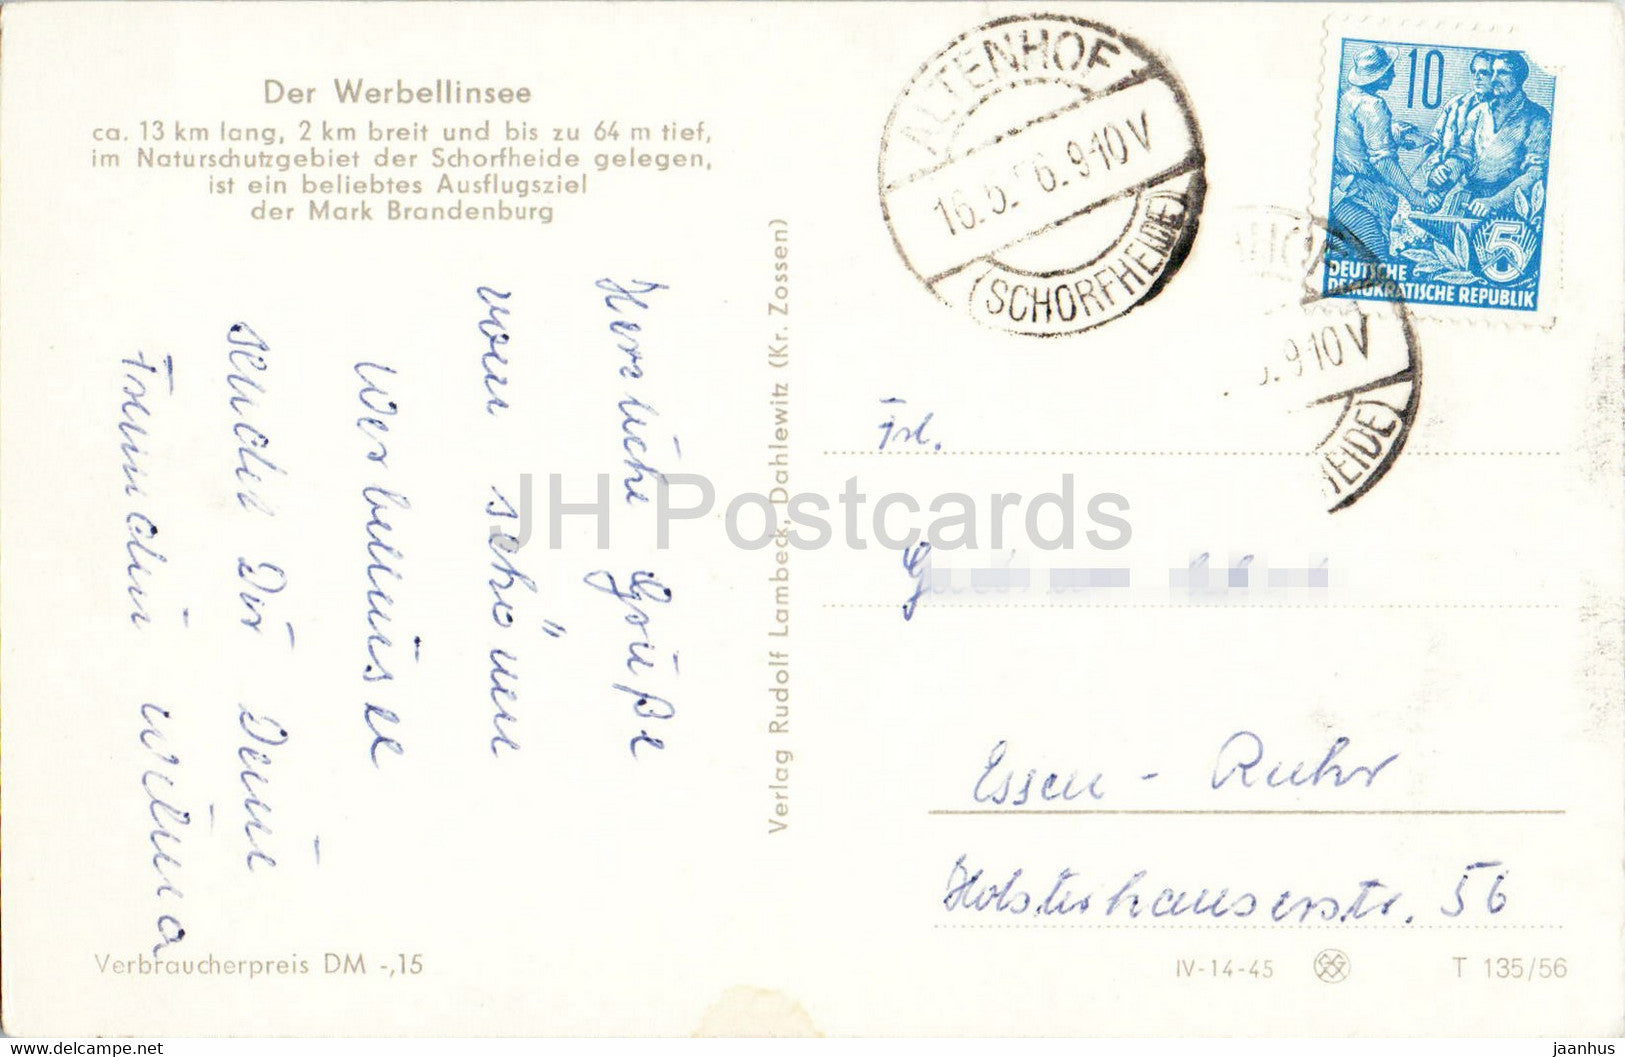 Der Werbellinsee
ca. 13 km lang, 2 km breit und bis zu 64 m tief,
im Naturschutzgebiet der Schorfheide gelegen,
ist ein beliebtes Ausflugsziel
der Mark Brandenburg
Herzliche Grüße
vom schönen
Werbellinsee
sendet Dir Deine
Freundin Wilma
Verbraucherpreis DM -,15
Verlag Rudolf Lambeck, Dahlewitz (Kr. Zossen)
ALTENHOF
16.5. 6.9-10V
(SCHORFHEIDE)
10
5
DEUTSCHE
DEMOKRATISCHE REPUBLIK
9-10V
HEIDE)
Frl.
G
Essen - Ruhr
Holsterhauserstr. 56
IV-14-45 T 135/56
JH Postcards
www.delcampe.net
jaanhus